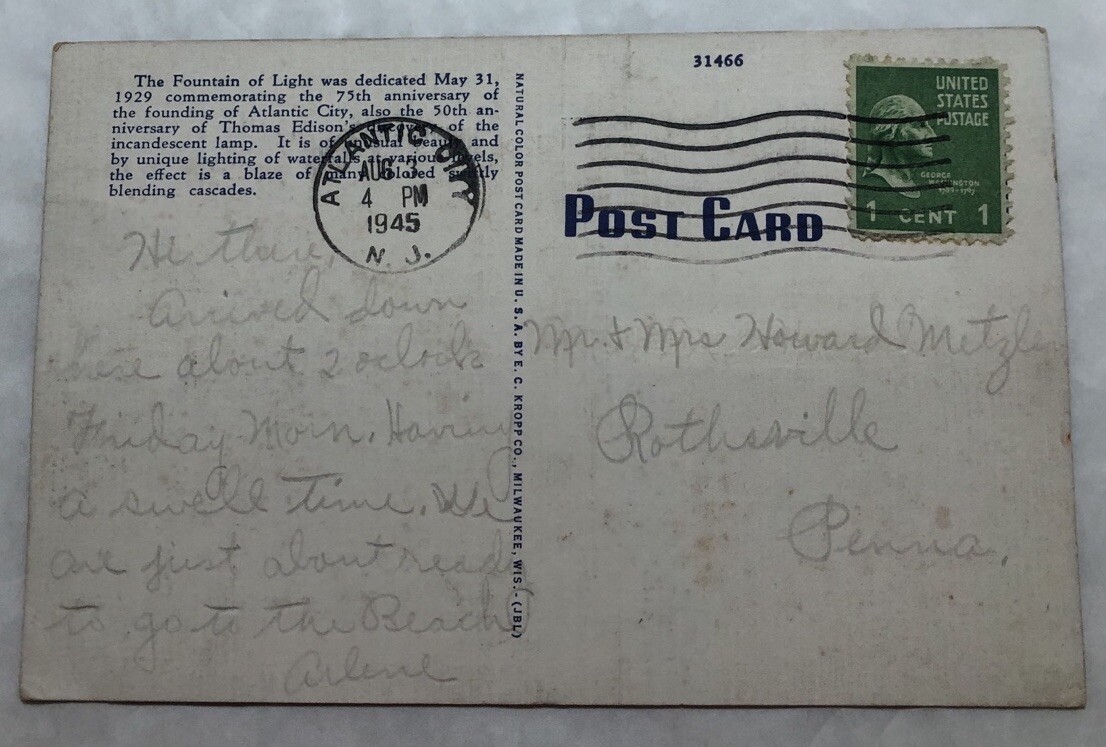 31466
The Fountain of Light was dedicated May 31,
1929 commemorating the 75th anniversary of
the founding of Atlantic City, also the 50th an-
niversary of Thomas Edison's discovery of the
incandescent lamp. It is of unusual beauty and
by unique lighting of waterfalls at various levels,
the effect is a blaze of many colored softly
blending cascades.
ATLANTIC CITY
AUG 3
4 PM
1945
N. J.
UNITED
STATES
POSTAGE
GEORGE
WASHINGTON
1789-1797
1 CENT 1
POST CARD
NATURAL COLOR POST CARD MADE IN U. S. A. BY E. C. KROPP CO., MILWAUKEE, WIS.-(JBL)
Hi there,
Arrived down
here about 2 oclock
Friday Morn. Having
a swell time. We
are just about ready
to go to the Beach
Arlene
Mr. & Mrs Howard Metzler
Rothsville
Penna.